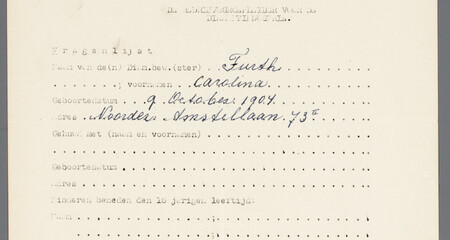 DE
VOOR DE
Vragenlijst
Naam van de(n) Dien.bew.(ster) . . Furth
; voornamen . . Carolina
Geboortedatum . 9 October 1904.
Adres . Noorder Amstellaan 73
Gehuwd met (naam en voornamen)
Geboortedatum
Adres
Kinderen beneden den 16 jarigen leeftijd:
Naam ;
;